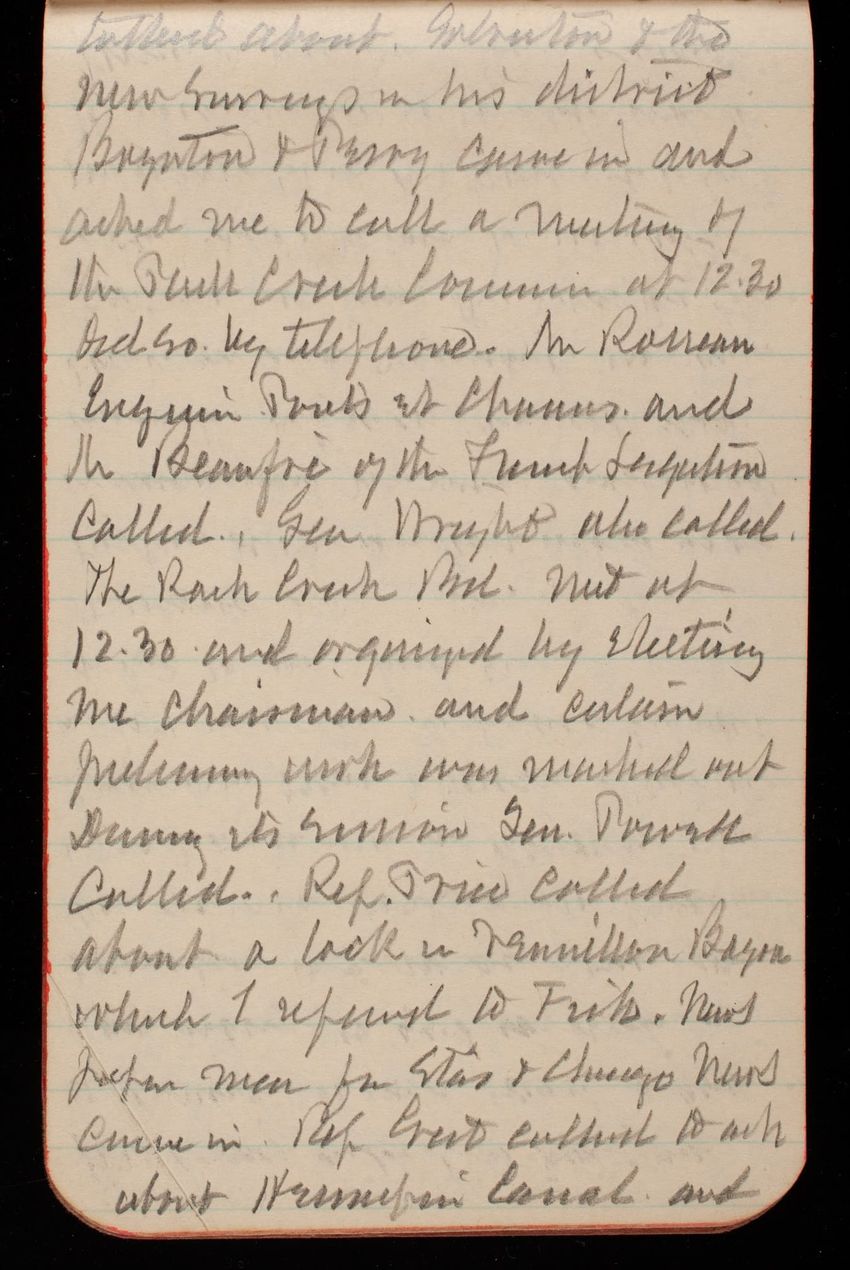 talked about. Galveston & the
new Surveys in his district
Boynton & Perry came in and
asked me to call a meeting of
the Rock Creek Commn at 12.30
Did so. by telephone. Mr
Engineer Ponts et Chauss. and
Mr of the French Legation
Called. Gen Wright also called.
The Rock Creek Bd. met at
12.30 and organized by electing
me Chairman. and certain
preliminary work was marked out
During its session Gen. Powell
Called. Rep. Price called
about a lock in Bayou
which I referred to . News
paper men for Star & Chicago News
came in. Rep called to ask
about Hennepin Canal and